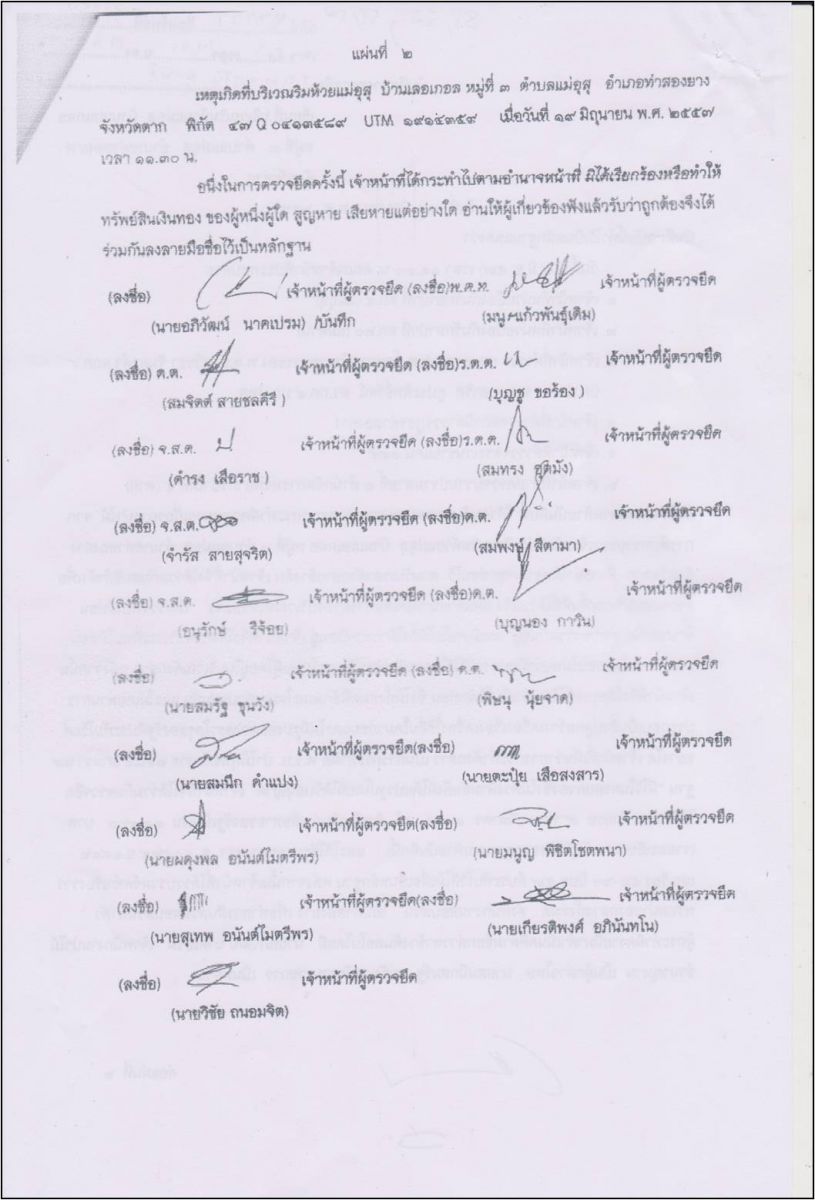 แผ่นที่ ๒
เหตุเกิดที่บริเวณริมห้วยแม่อุสุ บ้านเลอเกอล หมู่ที่ ๓ ตำบลแม่อุสุ อำเภอท่าสองยาง
จังหวัดตาก พิกัด ๔๗ Q ๐๔๑๓๕๘๙ UTM ๑๙๑๔๓๕๙ เมื่อวันที่ ๑๙ มิถุนายน พ.ศ. ๒๕๕๗
เวลา ๑๑.๓๐ น.
อนึ่งในการตรวจยึดครั้งนี้ เจ้าหน้าที่ได้กระทำไปตามอำนาจหน้าที่ มิได้เรียกร้องหรือทำให้
ทรัพย์สินเงินทอง ของผู้หนึ่งผู้ใด สูญหาย เสียหายแต่อย่างใด อ่านให้ผู้เกี่ยวข้องฟังแล้วรับว่าถูกต้องจึงได้
ร่วมกันลงลายมือชื่อไว้เป็นหลักฐาน
(ลงชื่อ) เจ้าหน้าที่ผู้ตรวจยึด (ลงชื่อ)พ.ต.ท. เจ้าหน้าที่ผู้ตรวจยึด
(นายอภิวัฒน์ นาคเปรม) /บันทึก (มนูญ แก้วพันธุ์เดิม)
(ลงชื่อ) ด.ต. เจ้าหน้าที่ผู้ตรวจยึด (ลงชื่อ)ร.ต.ต. เจ้าหน้าที่ผู้ตรวจยึด
(สมจิตต์ สายชลคีรี ) (บุญชู ขอร้อง )
(ลงชื่อ) จ.ส.ต. เจ้าหน้าที่ผู้ตรวจยึด (ลงชื่อ)ร.ต.ต. เจ้าหน้าที่ผู้ตรวจยึด
(ดำรง เสือราช ) (สมทรง
(ลงชื่อ) จ.ส.ต. เจ้าหน้าที่ผู้ตรวจยึด (ลงชื่อ)ด.ต. เจ้าหน้าที่ผู้ตรวจยึด
(จำรัส สายสุจริต) (สมพงษ์ สีตามา)
(ลงชื่อ) จ.ส.ต. เจ้าหน้าที่ผู้ตรวจยึด (ลงชื่อ)ด.ต. เจ้าหน้าที่ผู้ตรวจยึด
(อนุรักษ์ ริจ้อย) (บุญนอง กาวิน)
(ลงชื่อ) เจ้าหน้าที่ผู้ตรวจยึด (ลงชื่อ) ด.ต. เจ้าหน้าที่ผู้ตรวจยึด
(นายสมรัฐ ขุนวัง) (พิษนุ นุ้ยจาด)
(ลงชื่อ) เจ้าหน้าที่ผู้ตรวจยึด(ลงชื่อ) เจ้าหน้าที่ผู้ตรวจยึด
(นายสมนึก คำแปง) (นายตะปุ๋ย เสือสงสาร)
(ลงชื่อ) เจ้าหน้าที่ผู้ตรวจยึด(ลงชื่อ) เจ้าหน้าที่ผู้ตรวจยึด
(นายผดุงพล อนันต์ไมตรีพร) (นายมนูญ พิชิตโชตพนา)
(ลงชื่อ) เจ้าหน้าที่ผู้ตรวจยึด(ลงชื่อ) เจ้าหน้าที่ผู้ตรวจยึด
(นายสุเทพ อนันต์ไมตรีพร) (นายเกียรติพงศ์ อภินันทโน)
(ลงชื่อ) เจ้าหน้าที่ผู้ตรวจยึด
(นายวิชัย ถนอมจิต)